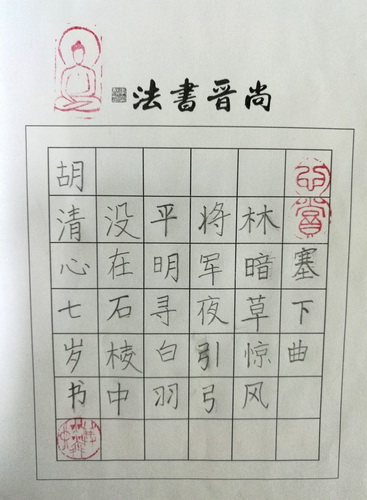 尚晋書法
塞下曲
林暗草惊风
将军夜引弓
平明寻白羽
没在石棱中
胡清心七岁书